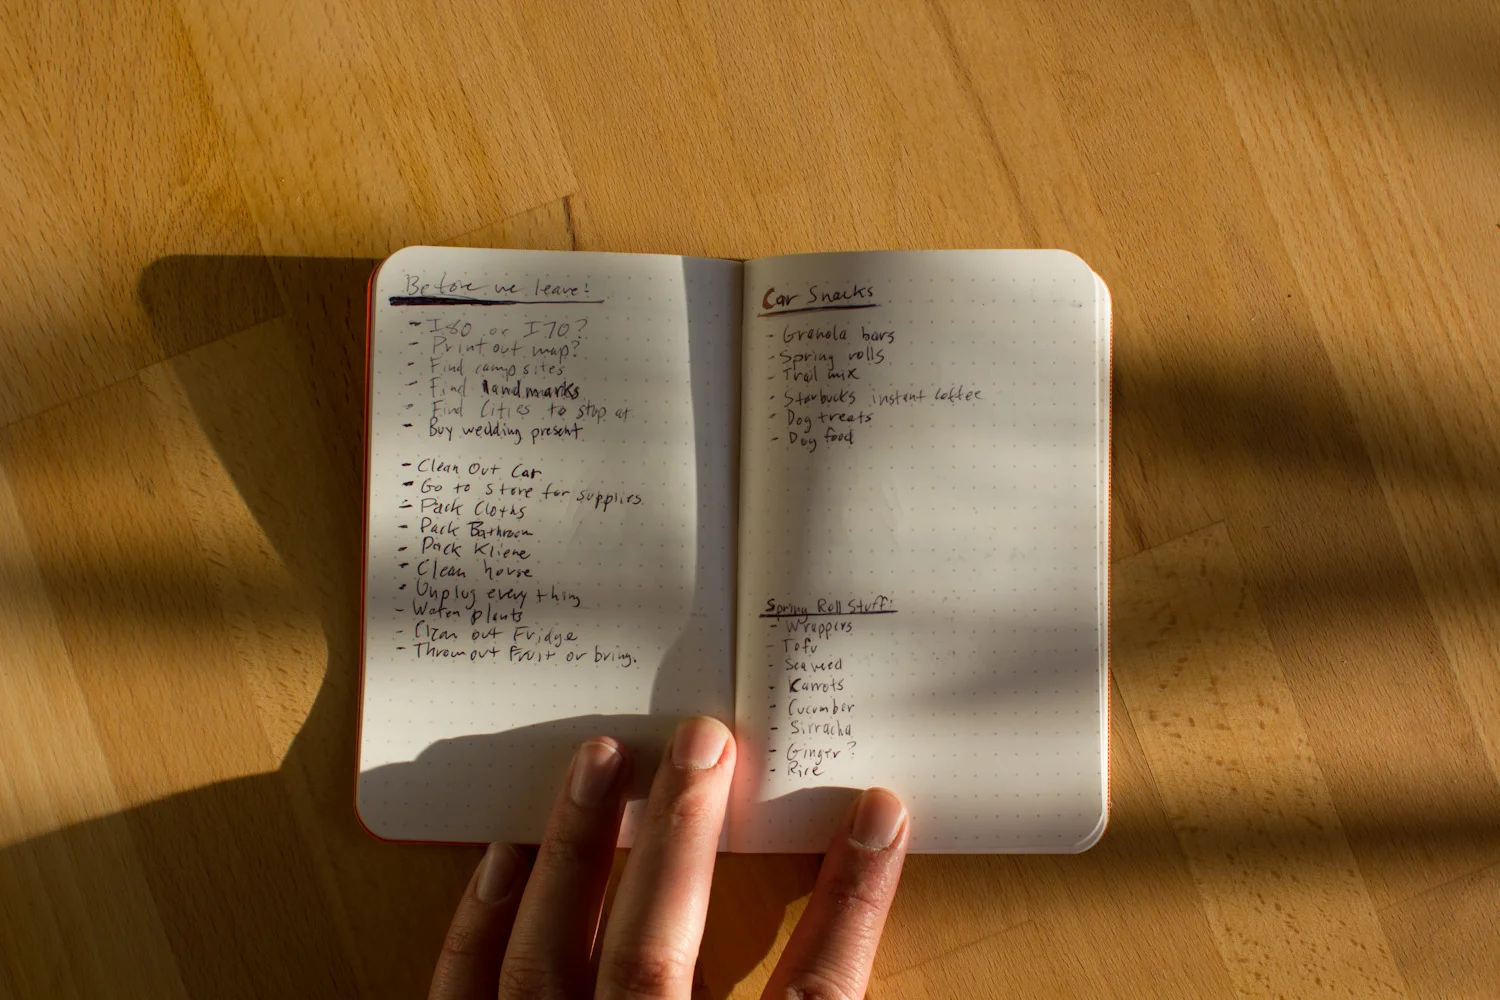 Before we leave!
- I80 or I70?
- Print out map?
- Find camp sites
- Find landmarks
- Find Cities to stop at
- Buy wedding present
- Clean Out Car
- Go to store for supplies
- Pack Cloths
- Pack Bathroom
- Pack Kliene
- Clean house
- Unplug every thing
- Water plants
- Clean out Fridge
- Throw out Fruit or bring.
Car Snacks
- Granola bars
- Spring rolls
- Trail mix
- Starbucks instant coffee
- Dog treats
- Dog food
Spring Roll Stuff:
- Wrappers
- Tofu
- Seaweed
- Karrots
- Cucumber
- Sirracha
- Ginger?
- Rice